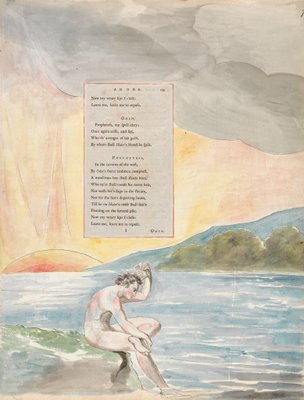 AN ODE.
Now my weary lips I close:
Leave me, leave me to repose.
ODIN.
Prophetess, my spell obey:
Once again arise, and say,
Who th' avenger of his guilt,
By whom shall Hoder's blood be spilt.
PROPHETESS.
In the caverns of the west,
By Odin's fierce embrace comprest,
A wond'rous boy shall Rinda bear,
Who ne'er shall comb his raven-hair,
Nor wash his visage in the stream,
Nor see the sun's departing beam,
Till he on Hoder's corse shall smile
Flaming on the fun'ral pile.
Now my weary lips I close:
Leave me, leave me to repose.
ODIN.